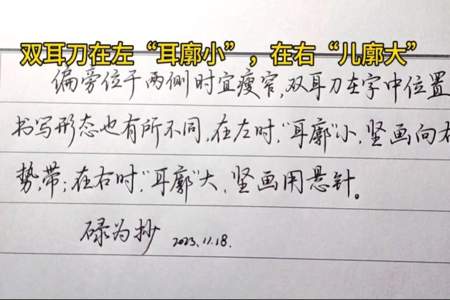 双耳刀在左“耳廓小”，在右“儿廓大”
偏旁位于两侧时宜瘦窄,双耳刀在字中位置
书写形态也有所不同,在左时,“耳廓”小,竖画向右
势,带;在右时,“耳廓”大,竖画用悬针。
碌为抄 2023.11.18.